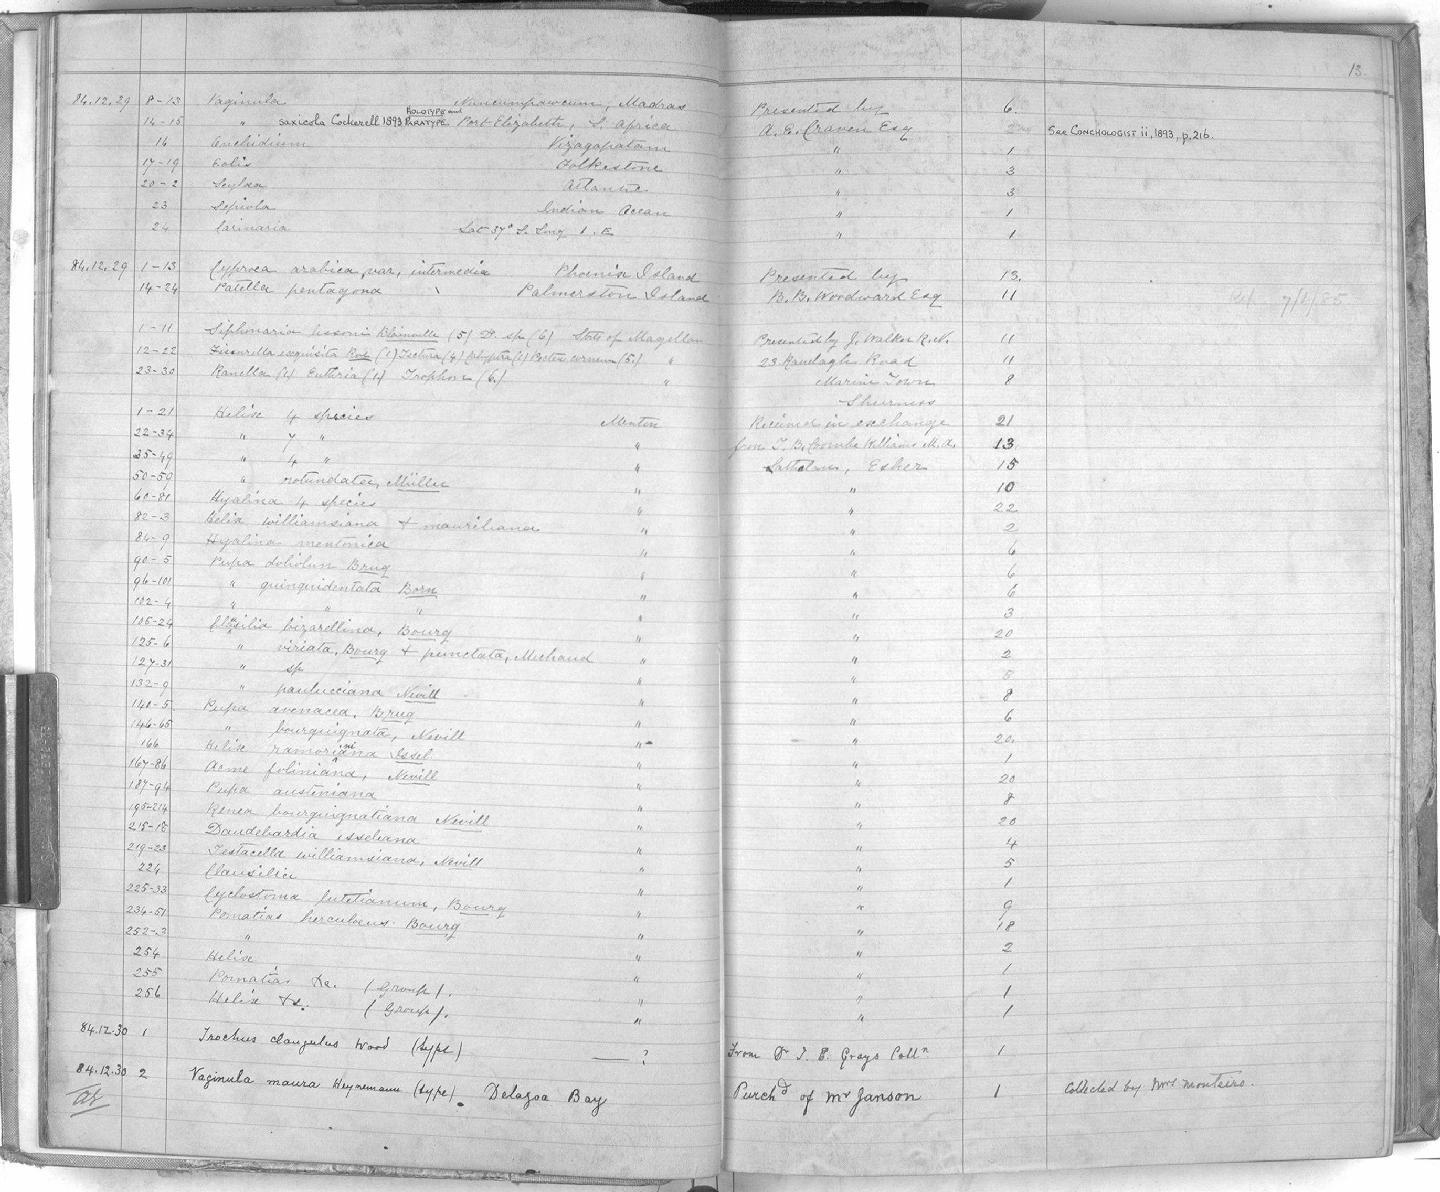 13.
84.12.29 8-13 Vaginula Nuncumpawcum, Madras Presented by 6.
14-15 " saxicola Cockerell 1893 HOLOTYPE and PARATYPE Port Elizabeth, S. Africa A. E. Craven Esq See CONCHOLOGIST ii, 1893, p. 216.
16 Onchidium Vizagapatam " 1
17-19 Eolis Folkestone " 3
20-2 Scyllaea Atlantic " 3
23 Sepiola Indian Ocean " 1
24 Carinaria Lat 37° S. Long 1. E " 1
84.12.29 1-13 Cypraea arabica, var, intermedia Phoenix Island Presented by 13.
14-24 Patella pentagona \ Palmerston Island B. B. Woodward Esq 11 7/1/85
1-11 Siphonaria lessoni Blainville (5) D. sp (6) Strts of Magellan Presented by J. Walker R.N. 11
12-22 Fissurella exquisita Rve (1) Tectura (4) Calyptra (1) Pecten corneum (5.) " 23 Ranelagh Road 11
23-30 Ranella (1) Euthria (1) Trophon (6.) " Marine Town 8
Sheerness
1-21 Helix 4 species Menton Received in exchange 21
22-34 " 7 " " from T. B. Coombe Williams M.A. 13
35-49 " 4 " " Esher 15
50-59 " rotundatae, Müller " " 10
60-81 Hyalina 4 species " " 22
82-3 Helix williamsiana & mauriliana " " 2
84-9 Hyalina mentonica " " 6
90-5 Pupa doliolum Brug " " 6
96-101 " quinquidentata Born " " 6
102-4 " " " " " 3
105-24 Clausilia bizarellina, Bourg " " 20
125-6 " viriata, Bourg & punctata, Michaud " " 2
127-31 " sp " " 5
132-9 " paulucciana Nevill " " 8
140-5 Pupa avenacea, Brug " " 6
146-65 " bourguignata, Nevill " " 20.
166 Helix ramoriniana Issel " " 1
167-86 Acme foliniana, Nevill " " 20
187-94 Pupa austeniana " " 8
195-214 Renea bourguignatiana Nevill " " 20
215-18 Daudebardia isseliana " " 4
219-23 Testacella williamsiana, Nevill " " 5
224 Clausilia " " 1
225-33 Cyclostoma lutetianum, Bourg " " 9
234-51 Pomatias herculoeus Bourg " " 18
252-3 " " " 2
254 Helix " " 1
255 Pomatias &c. (Group). " " 1
256 Helix &c. (Group). " " 1
84.12.30 1 Trochus clangulus Wood (type) —— ? From Dr J. E. Grays Colln 1
84.12.30 2 Vaginula maura Heynemann (type). Delagoa Bay Purchd of Mr Janson 1 Collected by Mrs Monteiro.